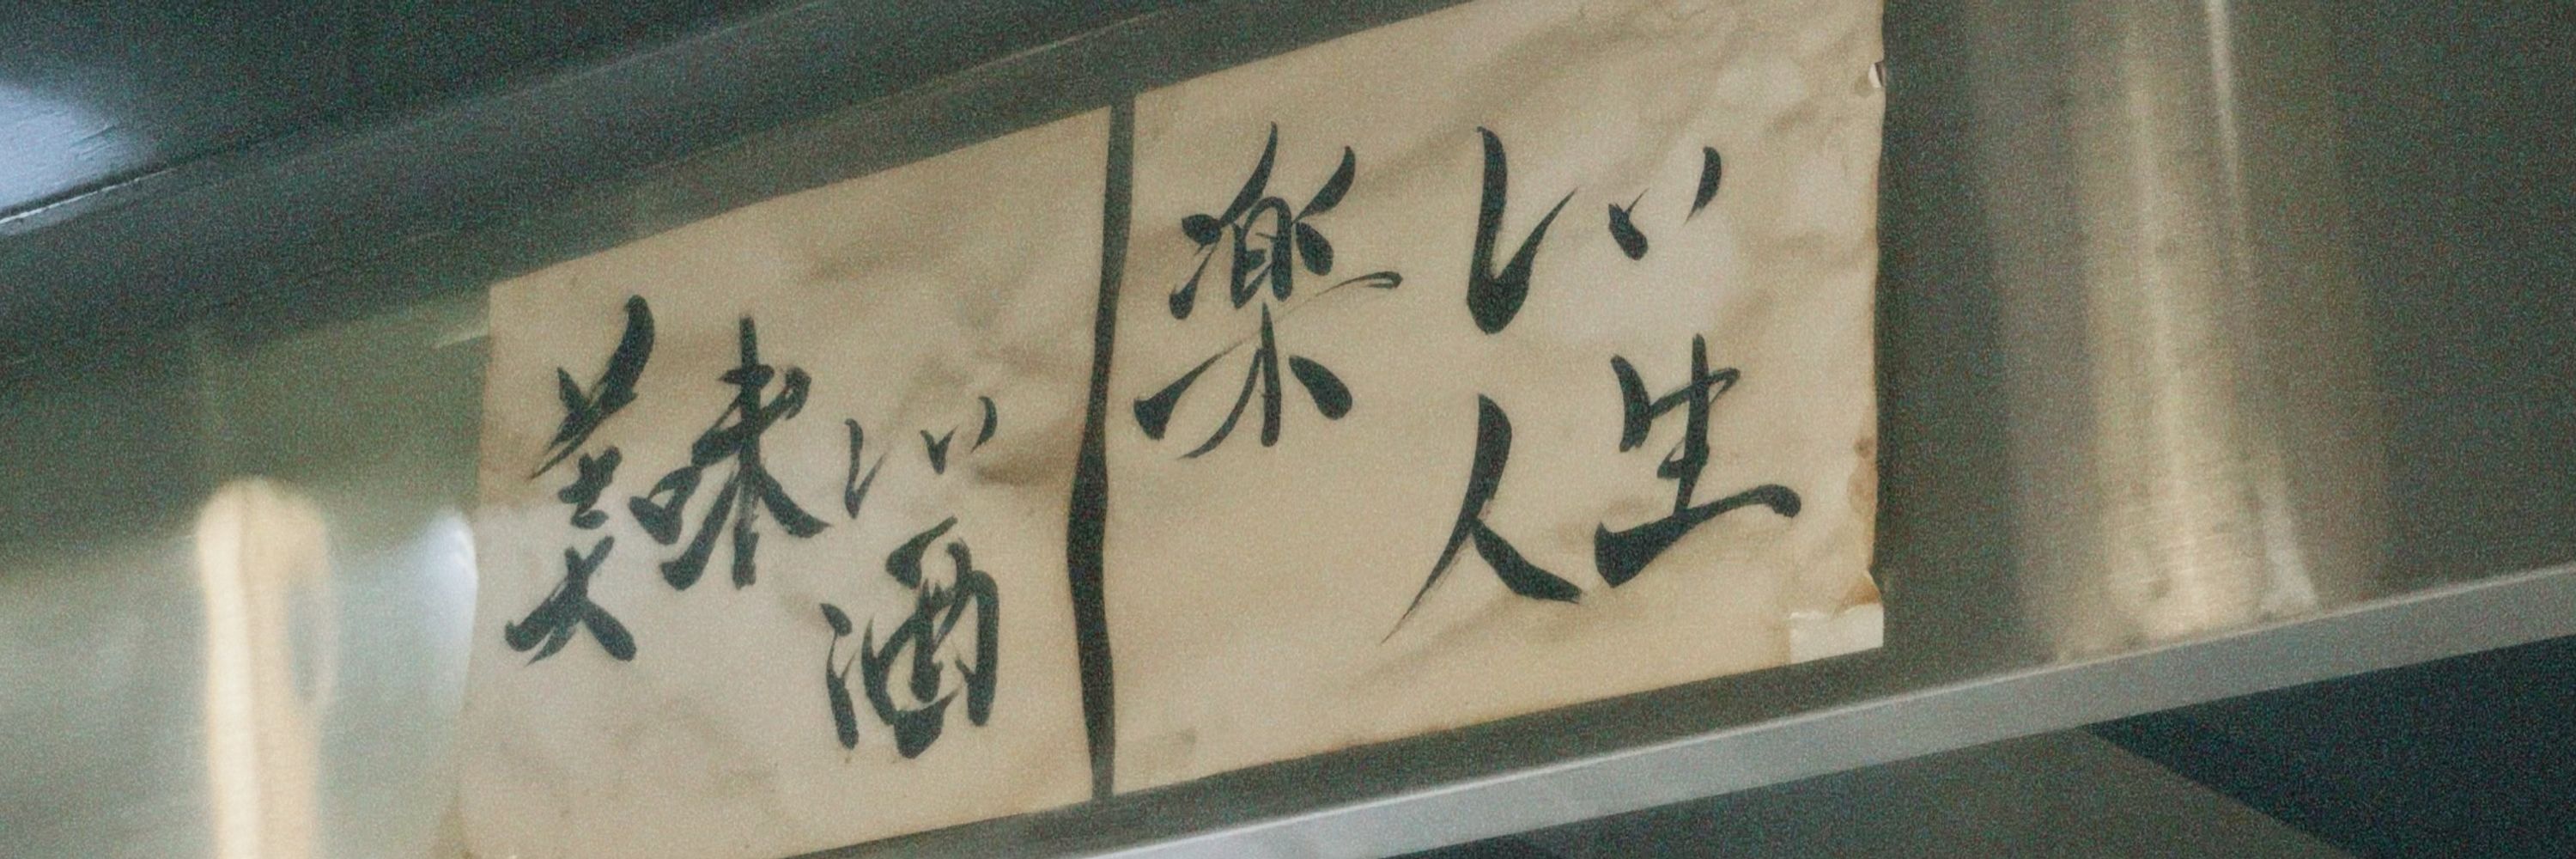 美味しい
酒
楽しい
人生